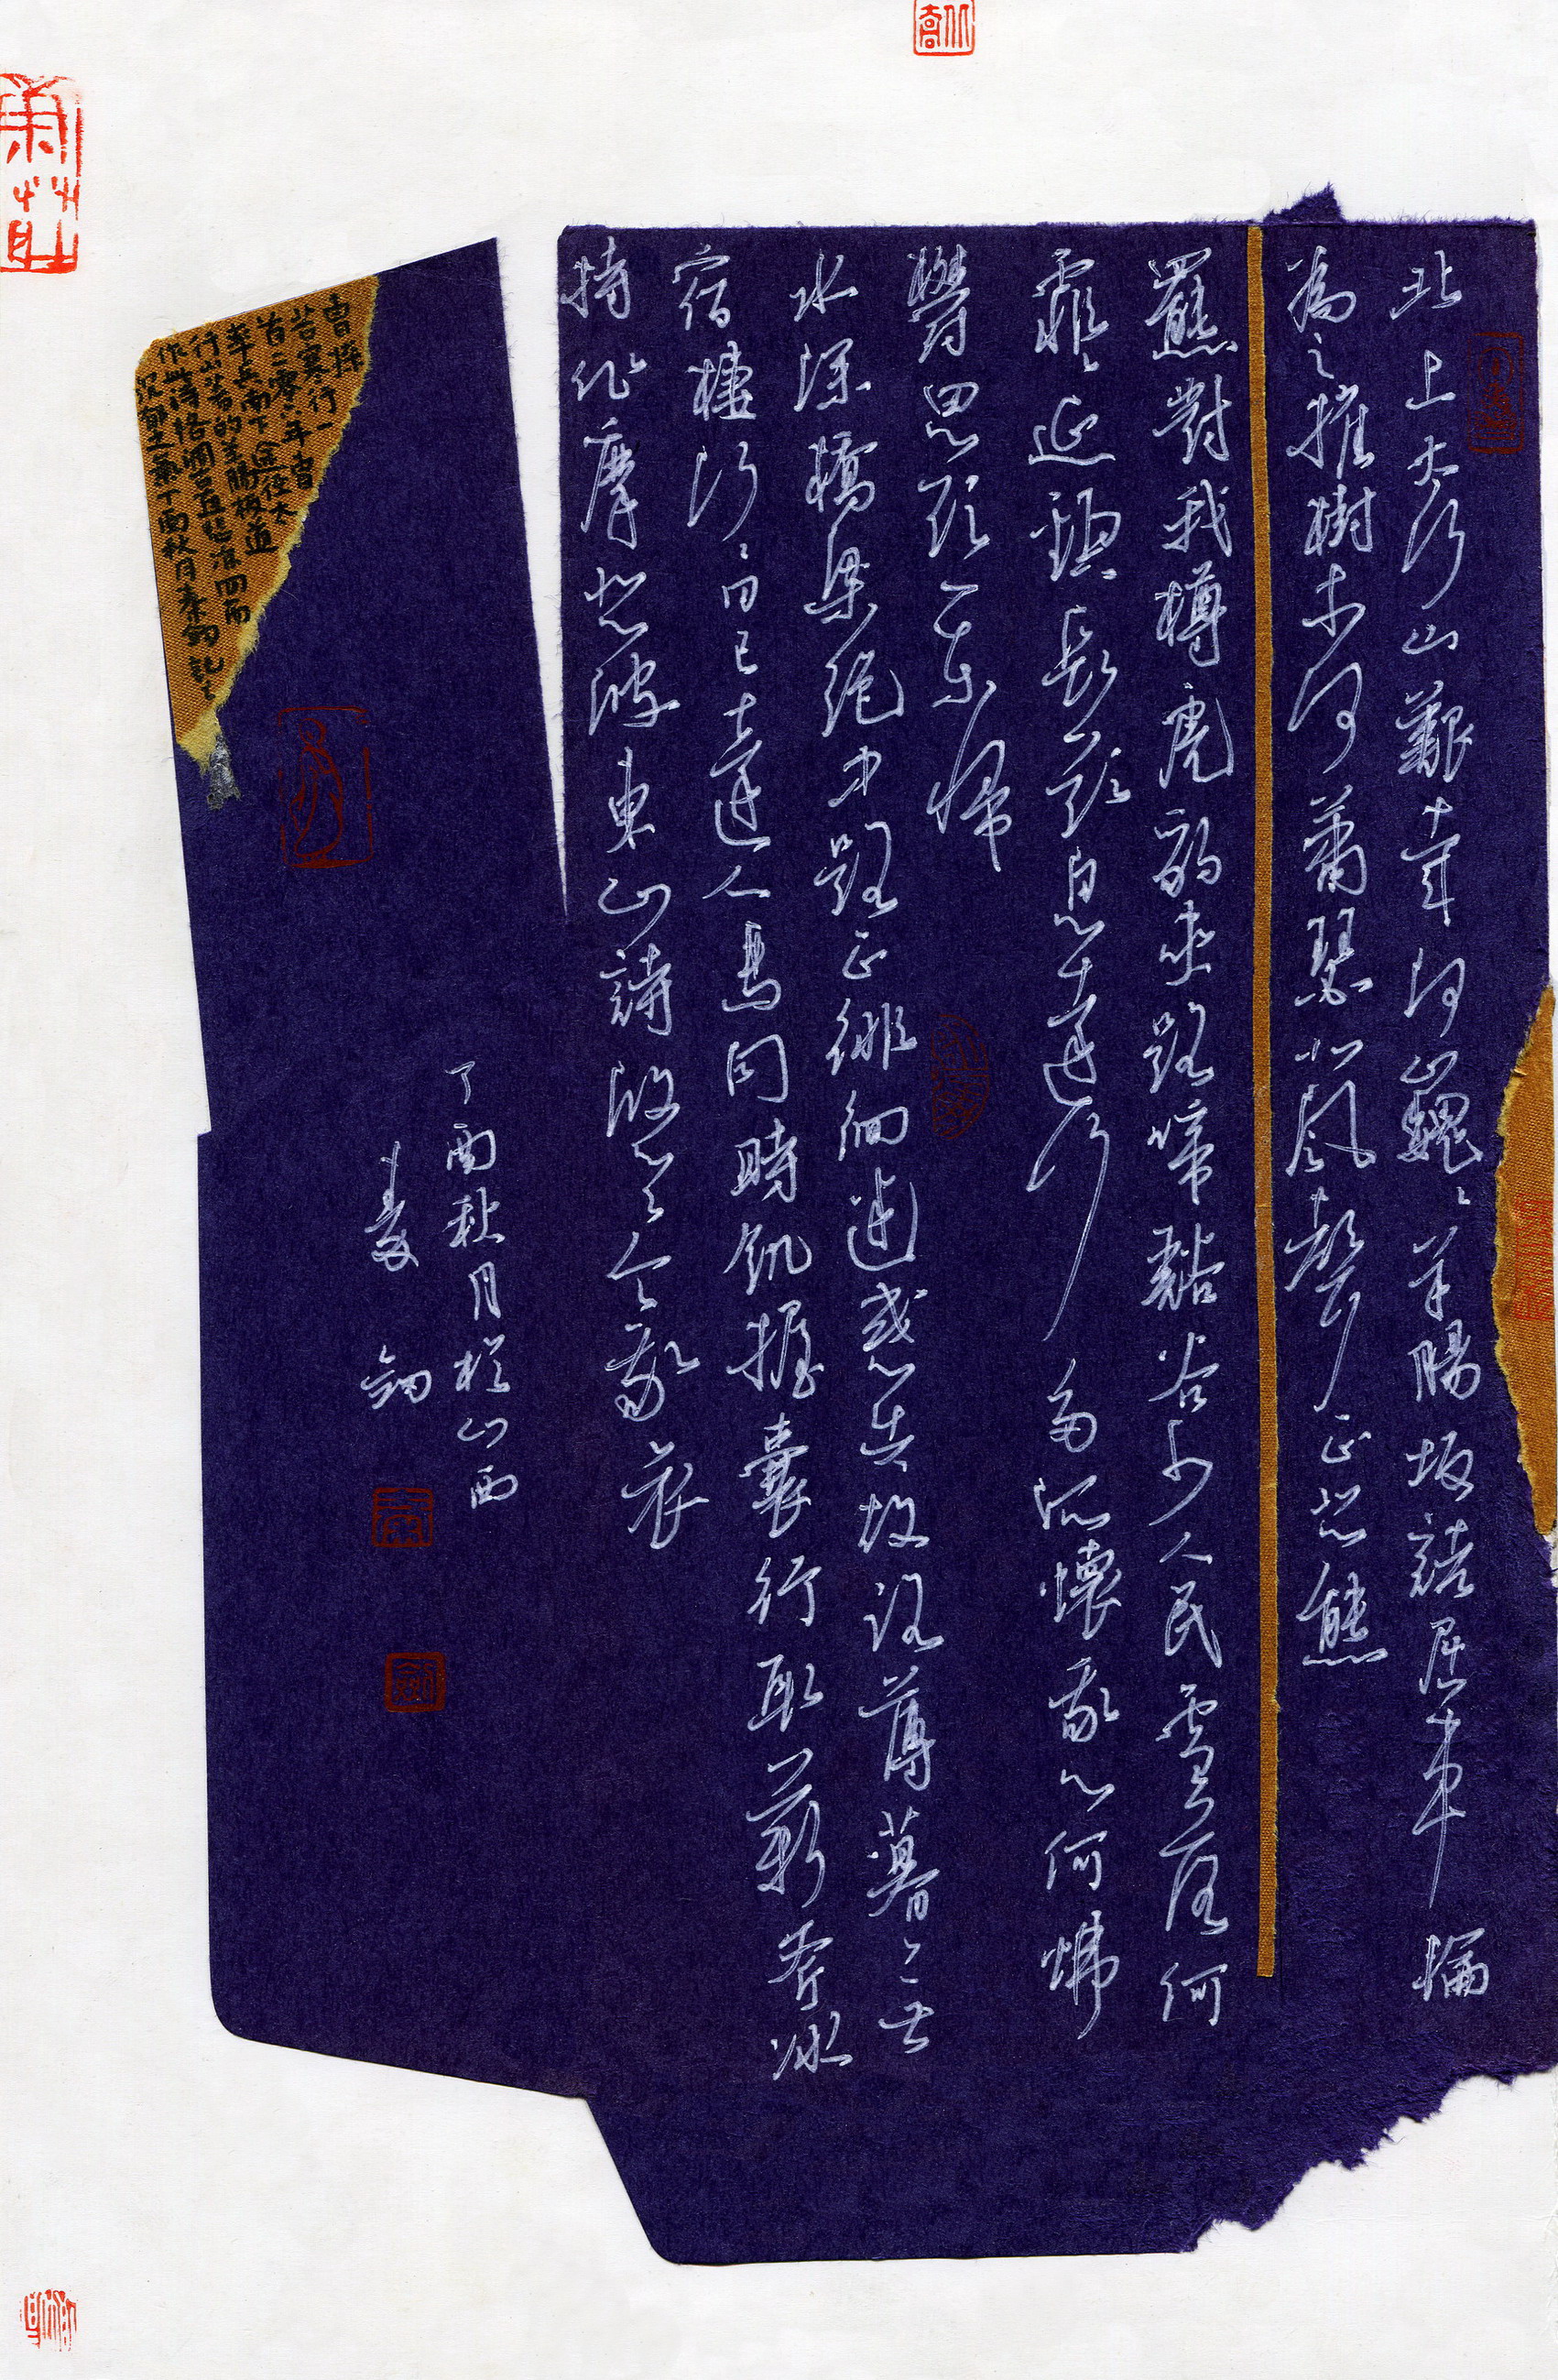 北上太行山艱哉何巍〻羊腸坂詰屈車輪
為之摧樹木何蕭瑟北風聲正悲熊
羆對我樽虎豹夾路啼谿谷少人民雪落何
霏〻延頸長歎息遠行多所懷我心何怫
鬱思欲一東歸
水深橋梁絕中路正徘徊迷惑失故路薄暮〻無
宿棲行〻日已遠人馬同時飢擔囊行取薪斧冰
持作糜悲彼東山詩悠〻令我哀
丁酉秋月於山西
曹操
苦寒行一
首二零六年曹
率兵南下途径太
行山著名的羊肠坂道
作此诗格调古直悲凉回
沉郁之气丁酉秋月